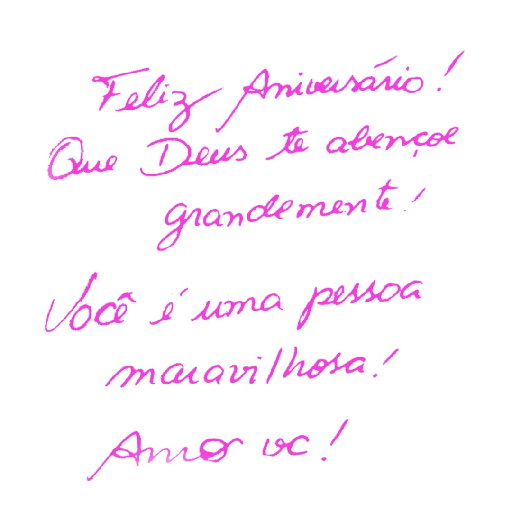 Feliz Aniversário!
Que Deus te abençoe
grandemente!
Você é uma pessoa
maravilhosa!
Amo vc!